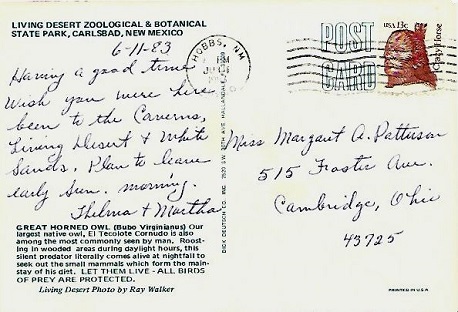 LIVING DESERT ZOOLOGICAL & BOTANICAL
STATE PARK, CARLSBAD, NEW MEXICO
6-11-83
Having a good time
Wish you were here
been to the Caverns,
Living Desert & White
Sands. Plan to leave
early Sun. morning.
Thelma & Martha
GREAT HORNED OWL (Bubo Virginianus) Our
largest native owl, El Tecolote Cornudo is also
among the most commonly seen by man. Roost-
ing in wooded areas during daylight hours, this
silent predator literally comes alive at nightfall to
seek out the small mammals which form the main-
stay of his diet. LET THEM LIVE - ALL BIRDS
OF PREY ARE PROTECTED.
Living Desert Photo by Ray Walker
DICK DEUTSCH CO. INC. AVE. HALLANDALE
HOBBS, NM
PM
POST
CARD
USA 13c
Crazy Horse
Miss Margaret A. Patterson
515 Foster Ave.
Cambridge, Ohio
43725
PRINTED IN U.S.A.